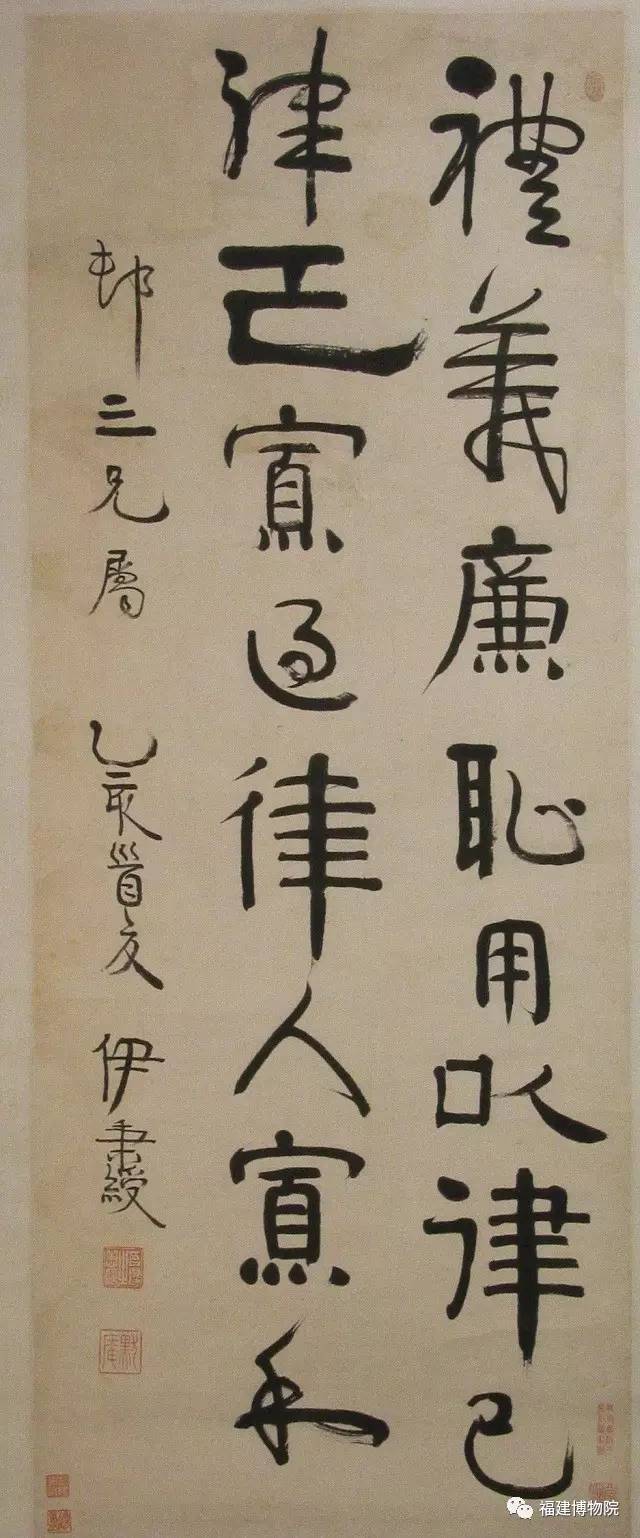 禮義廉恥用以律己
律己寡過律人寡和
邨三兄屬 乙亥首夏 伊秉綬
福建博物院